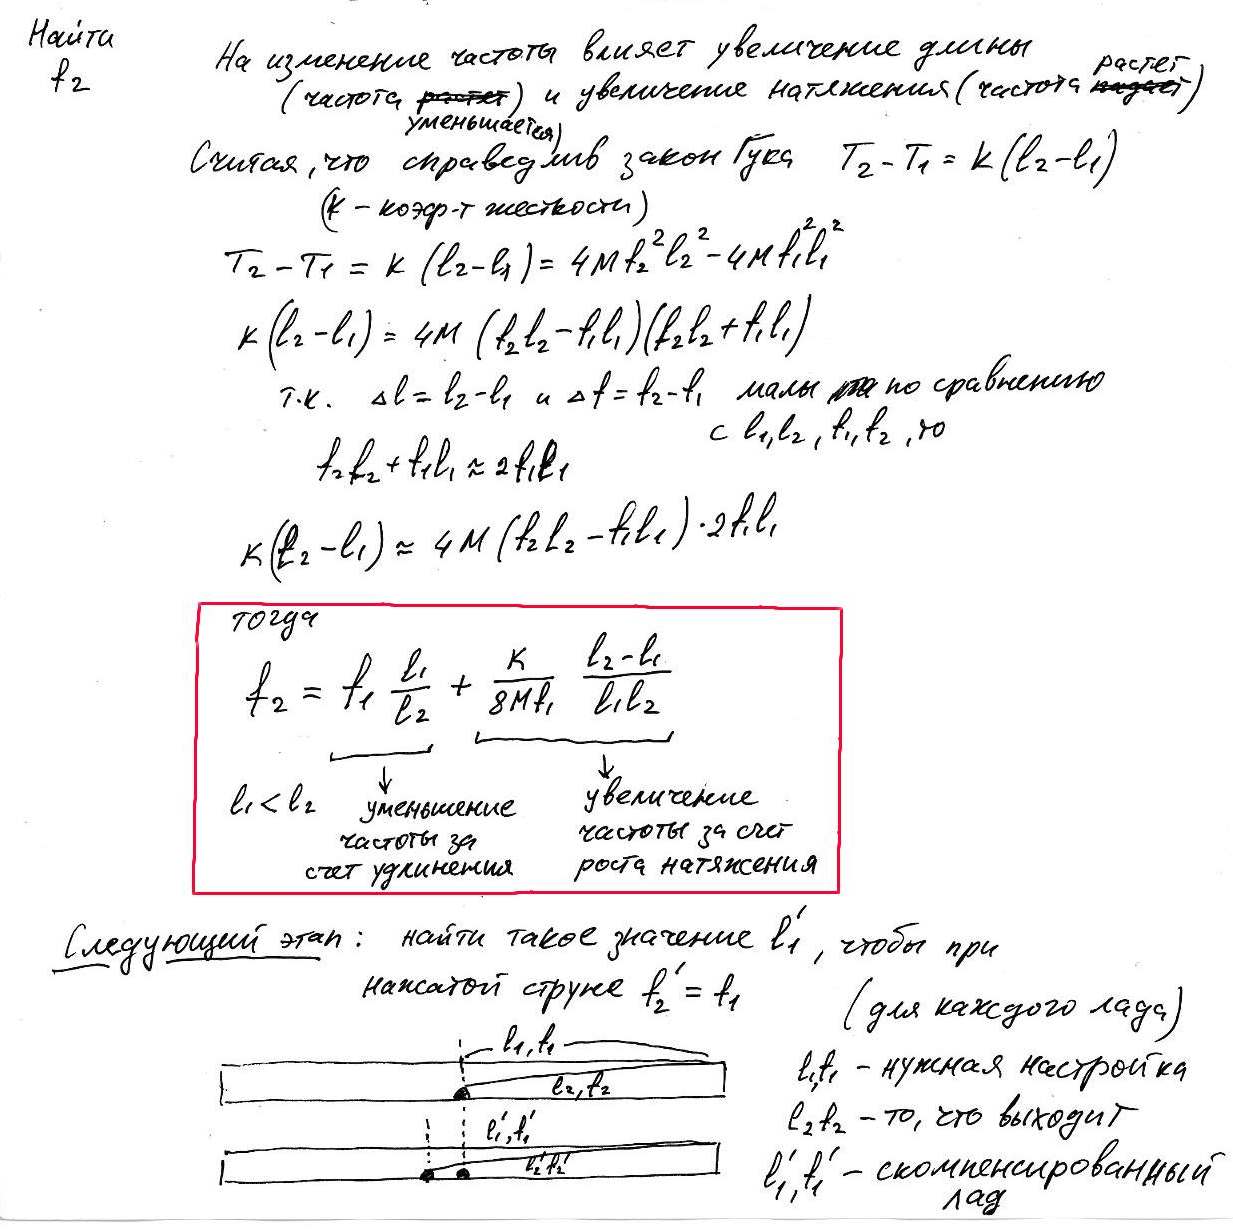 Найти
f₂
На изменение частоты влияет увеличение длины
(частота ~~растет~~ уменьшается) и увеличение натяжения (частота ~~падает~~ растет)
Считая, что справедлив закон Гука T₂ - T₁ = K(l₂-l₁)
(K - коэф-т жесткости)
T₂ - T₁ = K (l₂-l₁) = 4Mf₂²l₂² - 4Mf₁²l₁²
K(l₂-l₁) = 4M (f₂l₂ - f₁l₁)(f₂l₂ + f₁l₁)
т.к. Δl = l₂-l₁ и Δf = f₂-f₁ малы по сравнению
с l₁,l₂, f₁,f₂, то
f₂l₂ + f₁l₁ ≈ 2f₁l₁
K(l₂-l₁) ≈ 4M(f₂l₂ - f₁l₁)·2f₁l₁
тогда
f₂ = f₁ l₁/l₂ + K/(8Mf₁) (l₂-l₁)/(l₁l₂)
l₁ < l₂
уменьшение
частоты за
счет удлинения
увеличение
частоты за счет
роста натяжения
Следующий этап: найти такое значение l₁′, чтобы при
нажатой струне f₂′ = f₁
(для каждого лада)
l₁, f₁
l₂, f₂
l₁′, f₁′
l₂′ f₂′
l₁f₁ - нужная настройка
l₂f₂ - то, что выходит
l₁′, f₁′ - скомпенсированный
лад